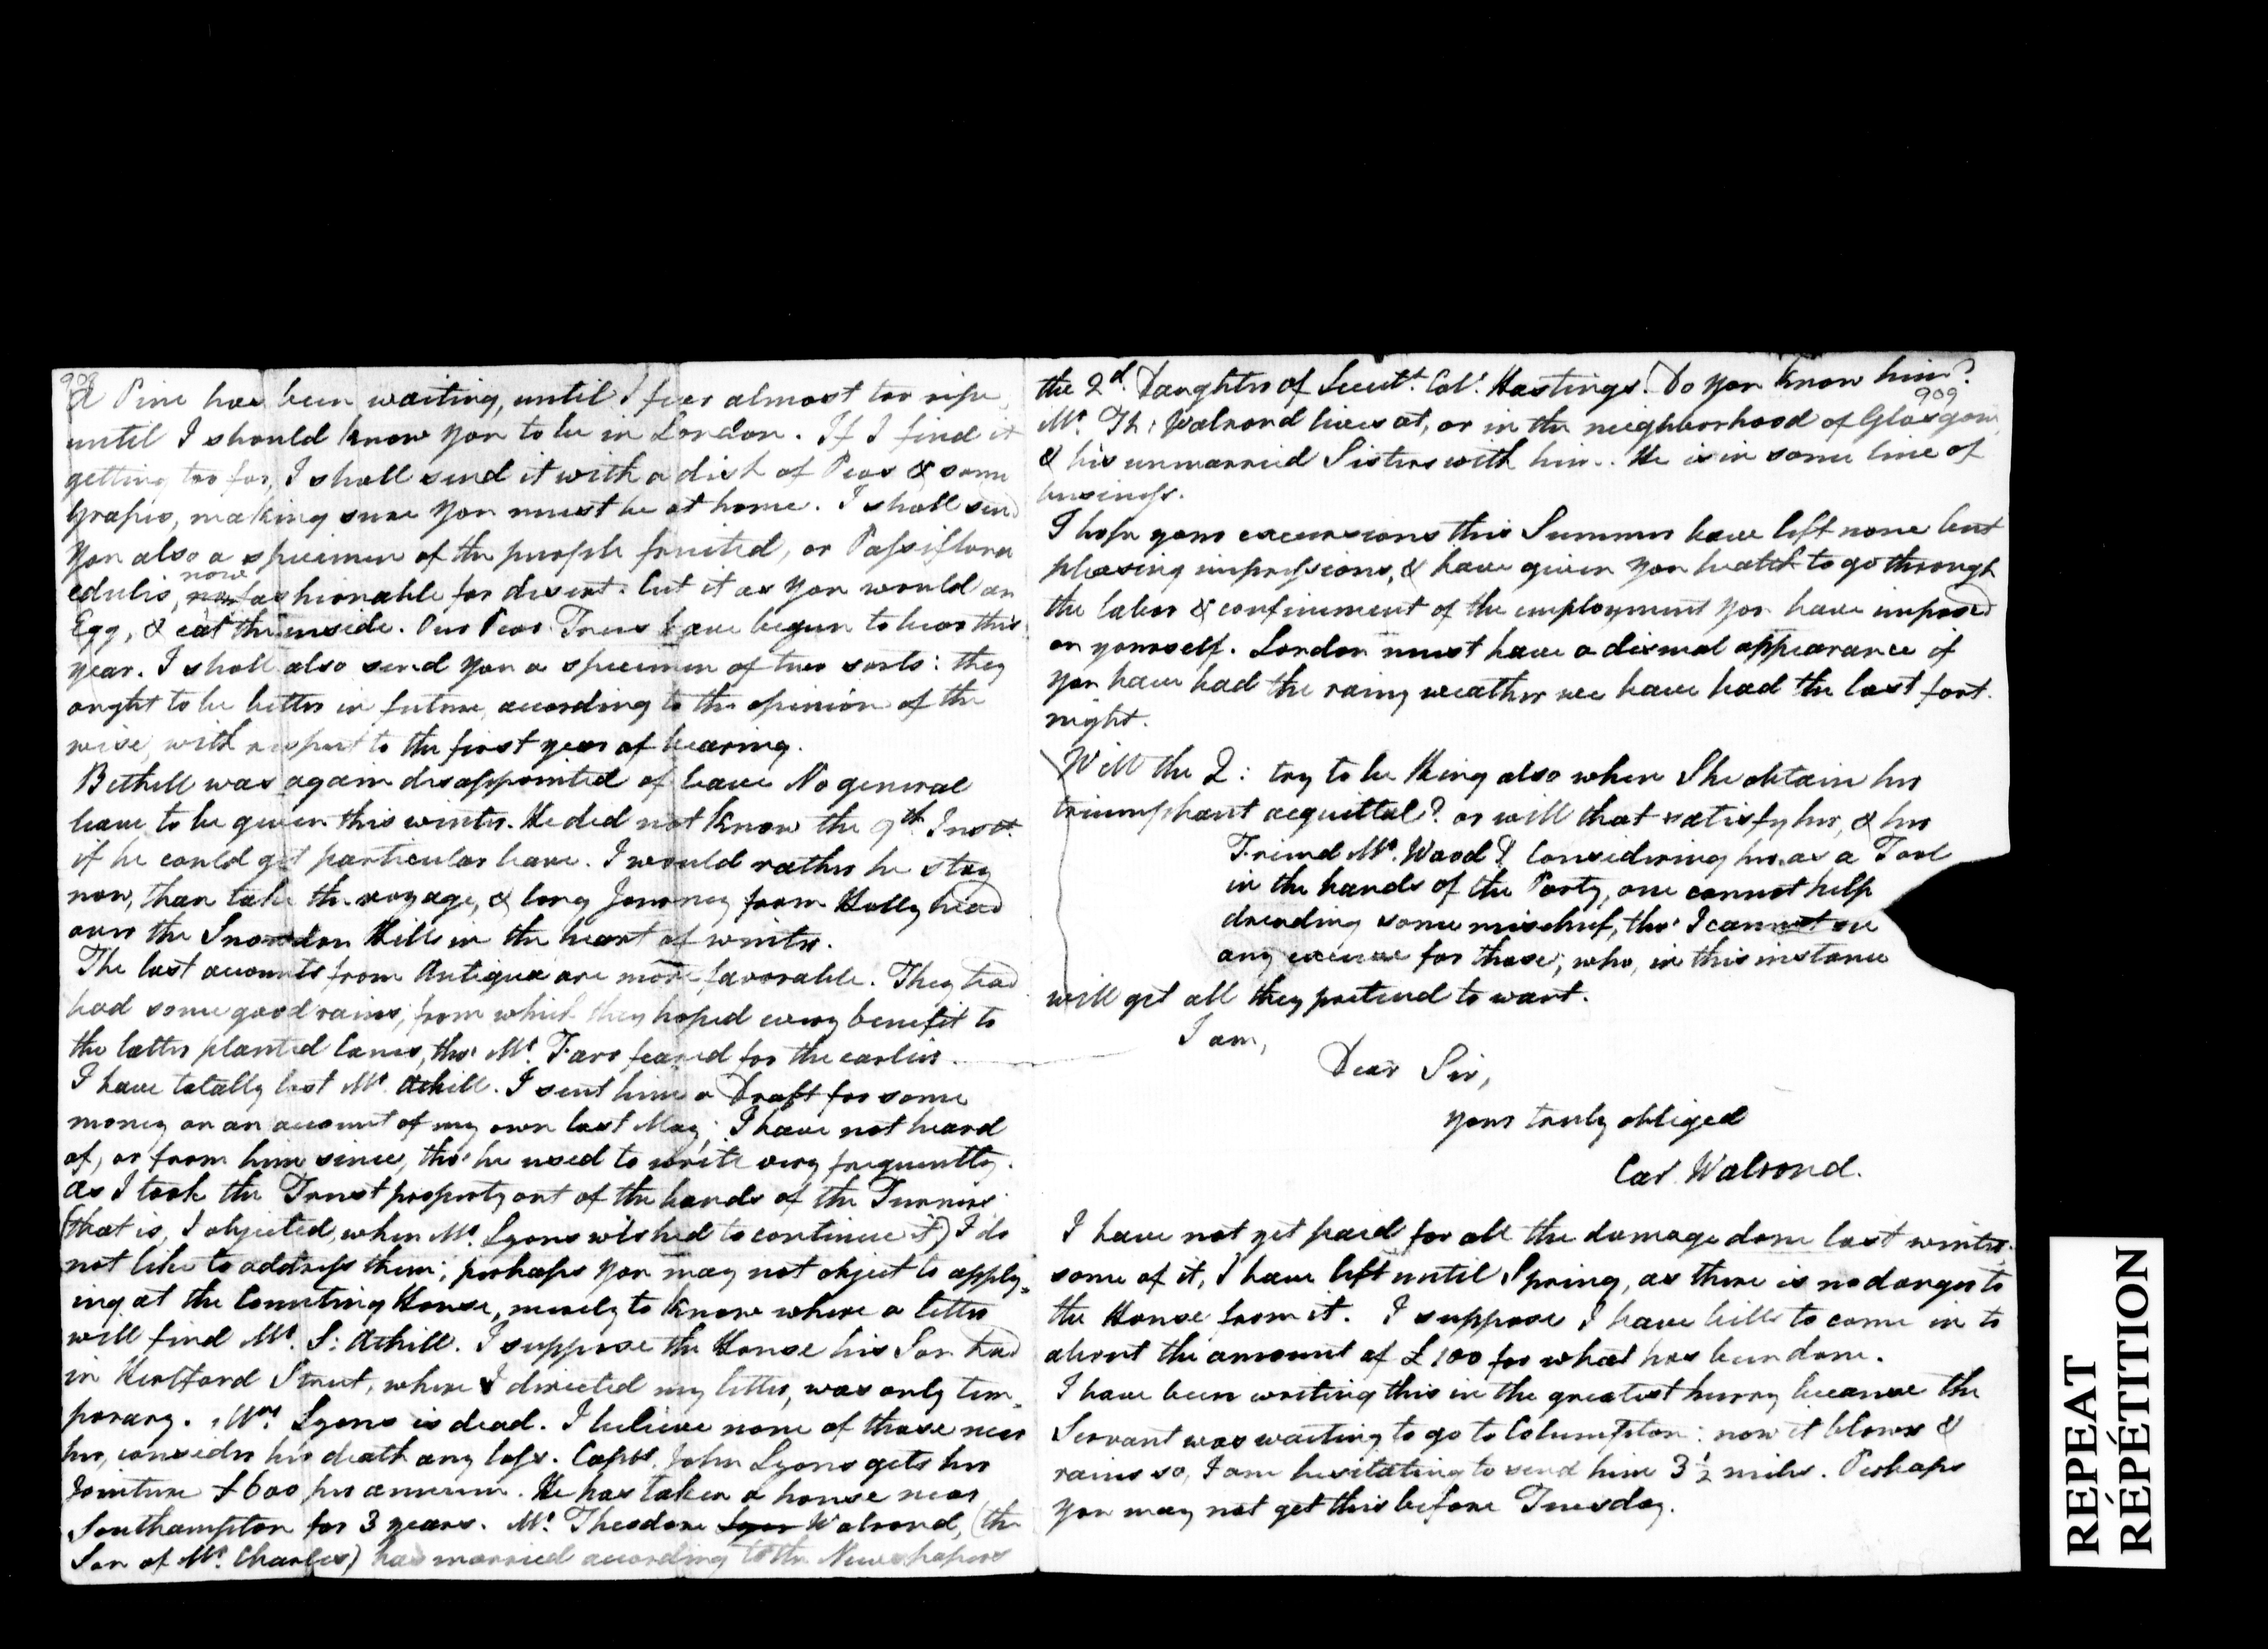 908
A Pine has been waiting, until I fear almost too ripe,
until I should know you to be in London. If I find it
getting too far, I shall send it with a dish of Pears & some
Grapes, making sure you must be at home. I shall send
you also a specimen of the purple fruited, or Passiflora
now
edulis, fashionable for desert. Cut it as you would an
Egg, & eat the inside. Our Pear Trees have begun to bear this
year. I shall also send you a specimen of two sorts: they
ought to be better in future, according to the opinion of the
wise, with respect to the first year of bearing.
Bethell was again disappointed of leave No general
leave to be given this winter. He did not know the 9th. Inst.
if he could get particular leave. I would rather he stay
now, than take the voyage, & long Journey from Holly head
over the Snowdon Hills in the heart of winter.
The last accounts from Antigua are more favorable. They had
had some good rains, from which they hoped every benefit to
the latter planted Canes, tho' Mr. Farr feared for the earlier.
I have totally lost Mr. Athill. I sent him a Draft for some
money on an account of my own last May; I have not heard
of, or from him since, tho' he used to write very frequently.
As I took the Trust property out of the hands of the Turners
(that is, I objected, when Mr. Lyons wished to continue it) I do
not like to address them; perhaps you may not object to apply-
ing at the Counting House, merely to know where a letter
will find Mr. S: Athill. I suppose the House his Son had
in Hertford Street, where I directed my letter, was only tem-
porary. Mrs. Lyons is dead. I believe none of those near
her, consider her death any loss. Captn. John Lyons gets her
Jointure £600 per annum. He has taken a house near
Southampton for 3 years. Mr. Theodore Lyons Walrond, (the
Son of Mr. Charles) has married according to the Newspapers
the 2d. Daughter of Lieutt. Col: Hastings. Do you know him?
909
Mr. Th: Walrond lives at, or in the neighborhood of Glasgow,
& his unmarried Sisters with him. He is in some line of
business.
I hope your excursions this Summer have left none but
pleasing impressions, & have given you health to go through
the labor & confinement of the employment you have imposed
on yourself. London must have a dismal appearance if
you have had the rainy weather we have had the last fort-
night.
Will the Q: try to be King also when She obtain her
triumphant acquittal? or will that satisfy her, & her
Friend Mr. Wood? Considering her as a Tool
in the hands of the Party, one cannot help
dreading some mischief, tho' I cannot see
any excuse for those, who, in this instance
will get all they pretend to want.
I am,
Dear Sir,
your truly obliged
Car. Walrond.
I have not yet paid for all the damage done last winter;
some of it, I have left until Spring, as there is no danger to
the House from it. I suppose I have bills to come in to
about the amount of £100 for what has been done.
I have been writing this in the greatest hurry because the
Servant was waiting to go to Columpton: now it blows &
rains so, I am hesitating to send him 3 1/2 miles. Perhaps
you may not get this before Tuesday.
REPEAT
RÉPÉTITION